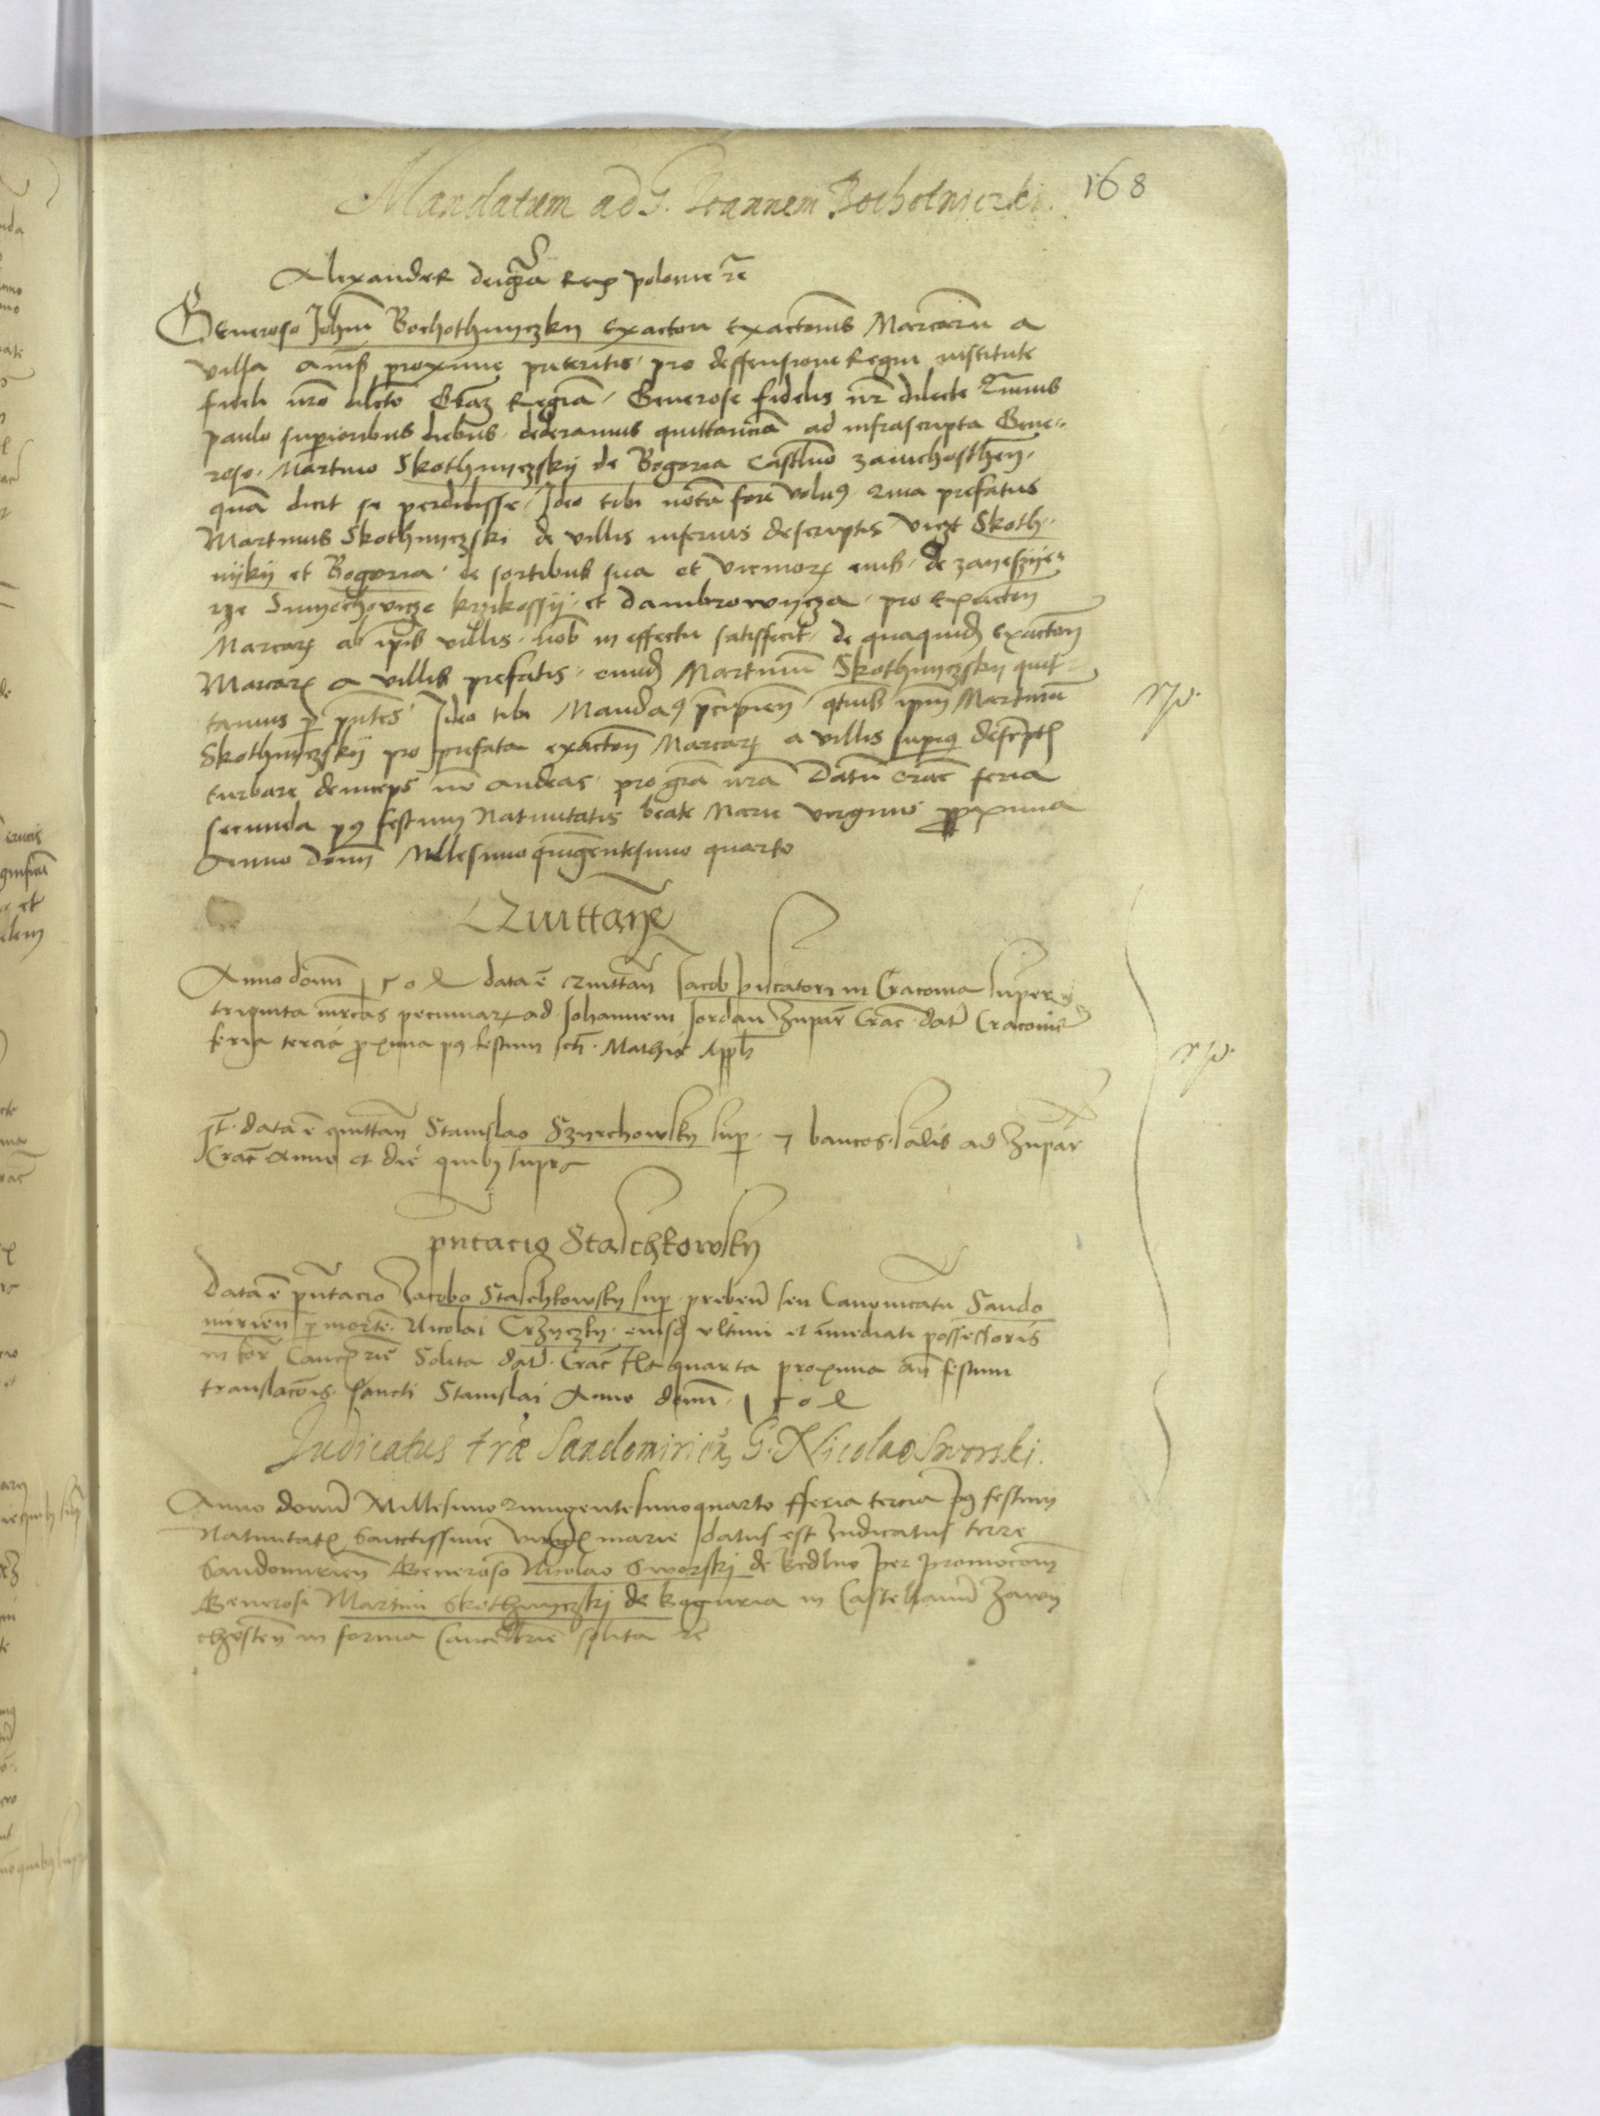 168
Mandatum ad G. Joannem Bochotniczki.
Alexander dei grã Rex polonie rc
Generoso Johñi Bochothnyczky exactori exactionis Marcarũ a
villa annis proxime preteritis pro deffensione Regni institute
fideli nro dilcto Gräz Regiã. Generose fidelis nr dilecte Quamvis
paulo superioribus diebus dederamus quittanciã ad infrascripta Gene-
roso Martino Skothnyczskij de Bogoria Castllno Zawichosthen
quã dicit se perdidisse Ideo tibi notũ fore volu9 quia prefatus
Martinus Skothnyczski de villis inferius descriptis viczt Skoth-
nijkij et Bogoria de sortibus sua et vicinorz eius de Zaneszye-
rze Smyechovicze krykossij et Dambrowycza pro exacton
Marcarz ab ipis villis nob in effectu satisfecit de quaquidz exacton
Marcarz a villis prefatis eundz Martinũ Skothnyczsky quit-
tamus p pntes Ideo tibi Manda9 precipien qtus ipm Martinũ
Skothniczskij pro prefata exacton Marcarz a villis superi9 descriptis
turbare deinceps nõ audeas pro grã nrã Datũ Crac feria
secunda p9 festum Nativitatis beate Marie virginis proxima
Anno domi Millesimo quingentesimo quarto
Quittañe
Anno domi 1504 data ẽ quittañ Jacob piscatori in Cracovia super
triginta mrcas pecuniarz ad Johannem Jordan Zupar Crac dat Cracovie
feria tercia proxima p9 festum scti Mathie Appli
It data ẽ quittañ Stanislao Szyrchowsky sup 7 bancos salis ad Zupar
Crac Anno et die quibus supra
pntacio Staschkowsky
Data ẽ pntacio Jacobo Staschkowsky sup prebend seu Canonicatu Sando
mirien p mortẽ Nicolai Crzyczky eiusd ultimi et imediati possessoris
in for Cancrie Solita dat Crac fla quarta proxima añ festum
translacõis sancti Stanislai Anno domi 1504
Judicatus træ Sandomirien G. Nicolao Sworski.
Anno domi Millesimo quingentesimoquarto fferia tercia p9 festum
Nativitatis Sanctissime virgis marie datus est Judicatus terre
Sandomirien Generoso Nicolao Sworskij de Bedlno per promocoem
Generosi Martini Skothnyczskij de boguria in Castellanũ Zawy
chosten in forma Cancellrie solita rc